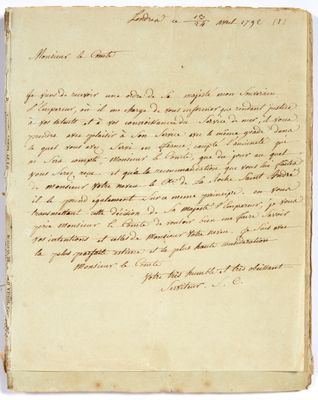 Londres ce 13/24 avril 1792 (1)
Monsieur le Comte
Je viens de recevoir une ordre de Sa majesté mon Souverain
l'Empereur, où il me charge de vous informer que rendant justice
à vos talents et à vos connoissances du Service de mer, il vous
prendra avec plaisir à Son Service avec le même grade dans
le quel vous avez Servi en france, compte l'ancienneté que
ne Sera compté, Monsieur le Comte, que du jour au quel
vous Serez reçu. et qu'à la recommandation que vous lui faites
de monsieur Votre neveu le Ch. de la Roche Saint André
il le prend également sur ce même principe. en vous
transmettant cette décision de Sa Majesté l'Empereur, je vous
prie monsieur le Comte de vouloir bien me faire Savoir
vos intentions et celles de Monsieur Votre neveu. Je Suis avec
la plus parfaite estime et la plus haute considération
Monsieur le Comte
Votre très humble et très obéissant
Serviteur